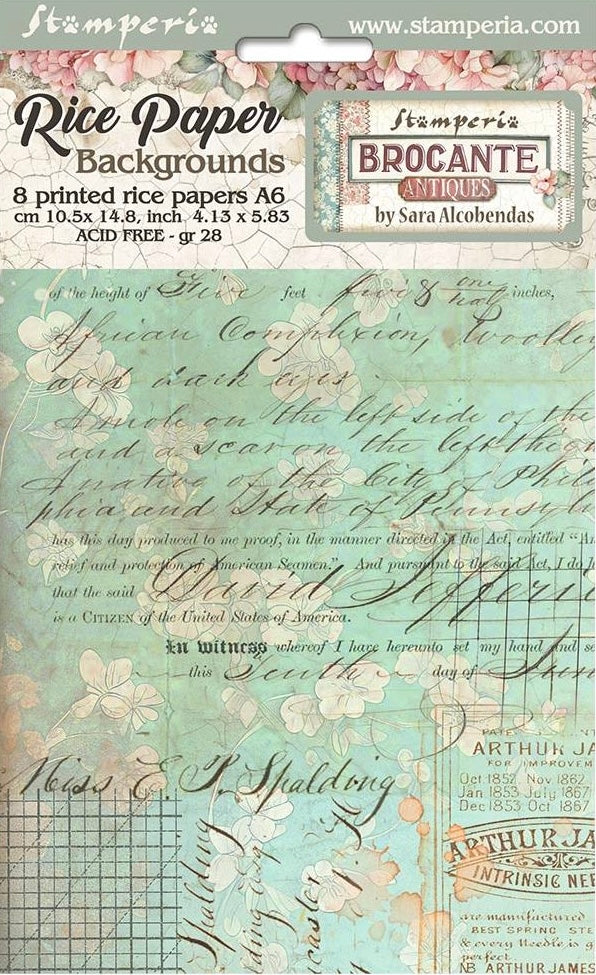 Stamperia
www.stamperia.com
Rice Paper
Backgrounds
8 printed rice papers A6
cm 10.5x 14.8, inch 4.13 x 5.83
ACID FREE - gr 28
Stamperia
BROCANTE
ANTIQUES
by Sara Alcobendas
of the height of Five feet five & one half inches,
African Complexion, Woolley
and dark eyes
A mole on the left side of the
and a scar on the left thigh
A native of the City of Phil
phia and State of Pennsylv
has this day produced to me proof, in the manner directed in the Act, entitled "An
relief and protection of American Seamen." And pursuant to the said Act, I do h
that the said David Jefferi
is a CITIZEN of the United States of America.
In witness whereof I have hereunto set my hand and se
this Tenth day of Jun
Miss E. P. Spalding
Spalding
caster
PATE NT
ARTHUR JA
FOR IMPROVEM
Oct 1852 Nov 1862
Jan 1853 July 1867
Dec 1853 Oct 1867
ARTHUR JA
INTRINSIC NEE
are manufactured
BEST SPRING STE
& every Needle is g
perfect.
NB ARTHUR JAMES